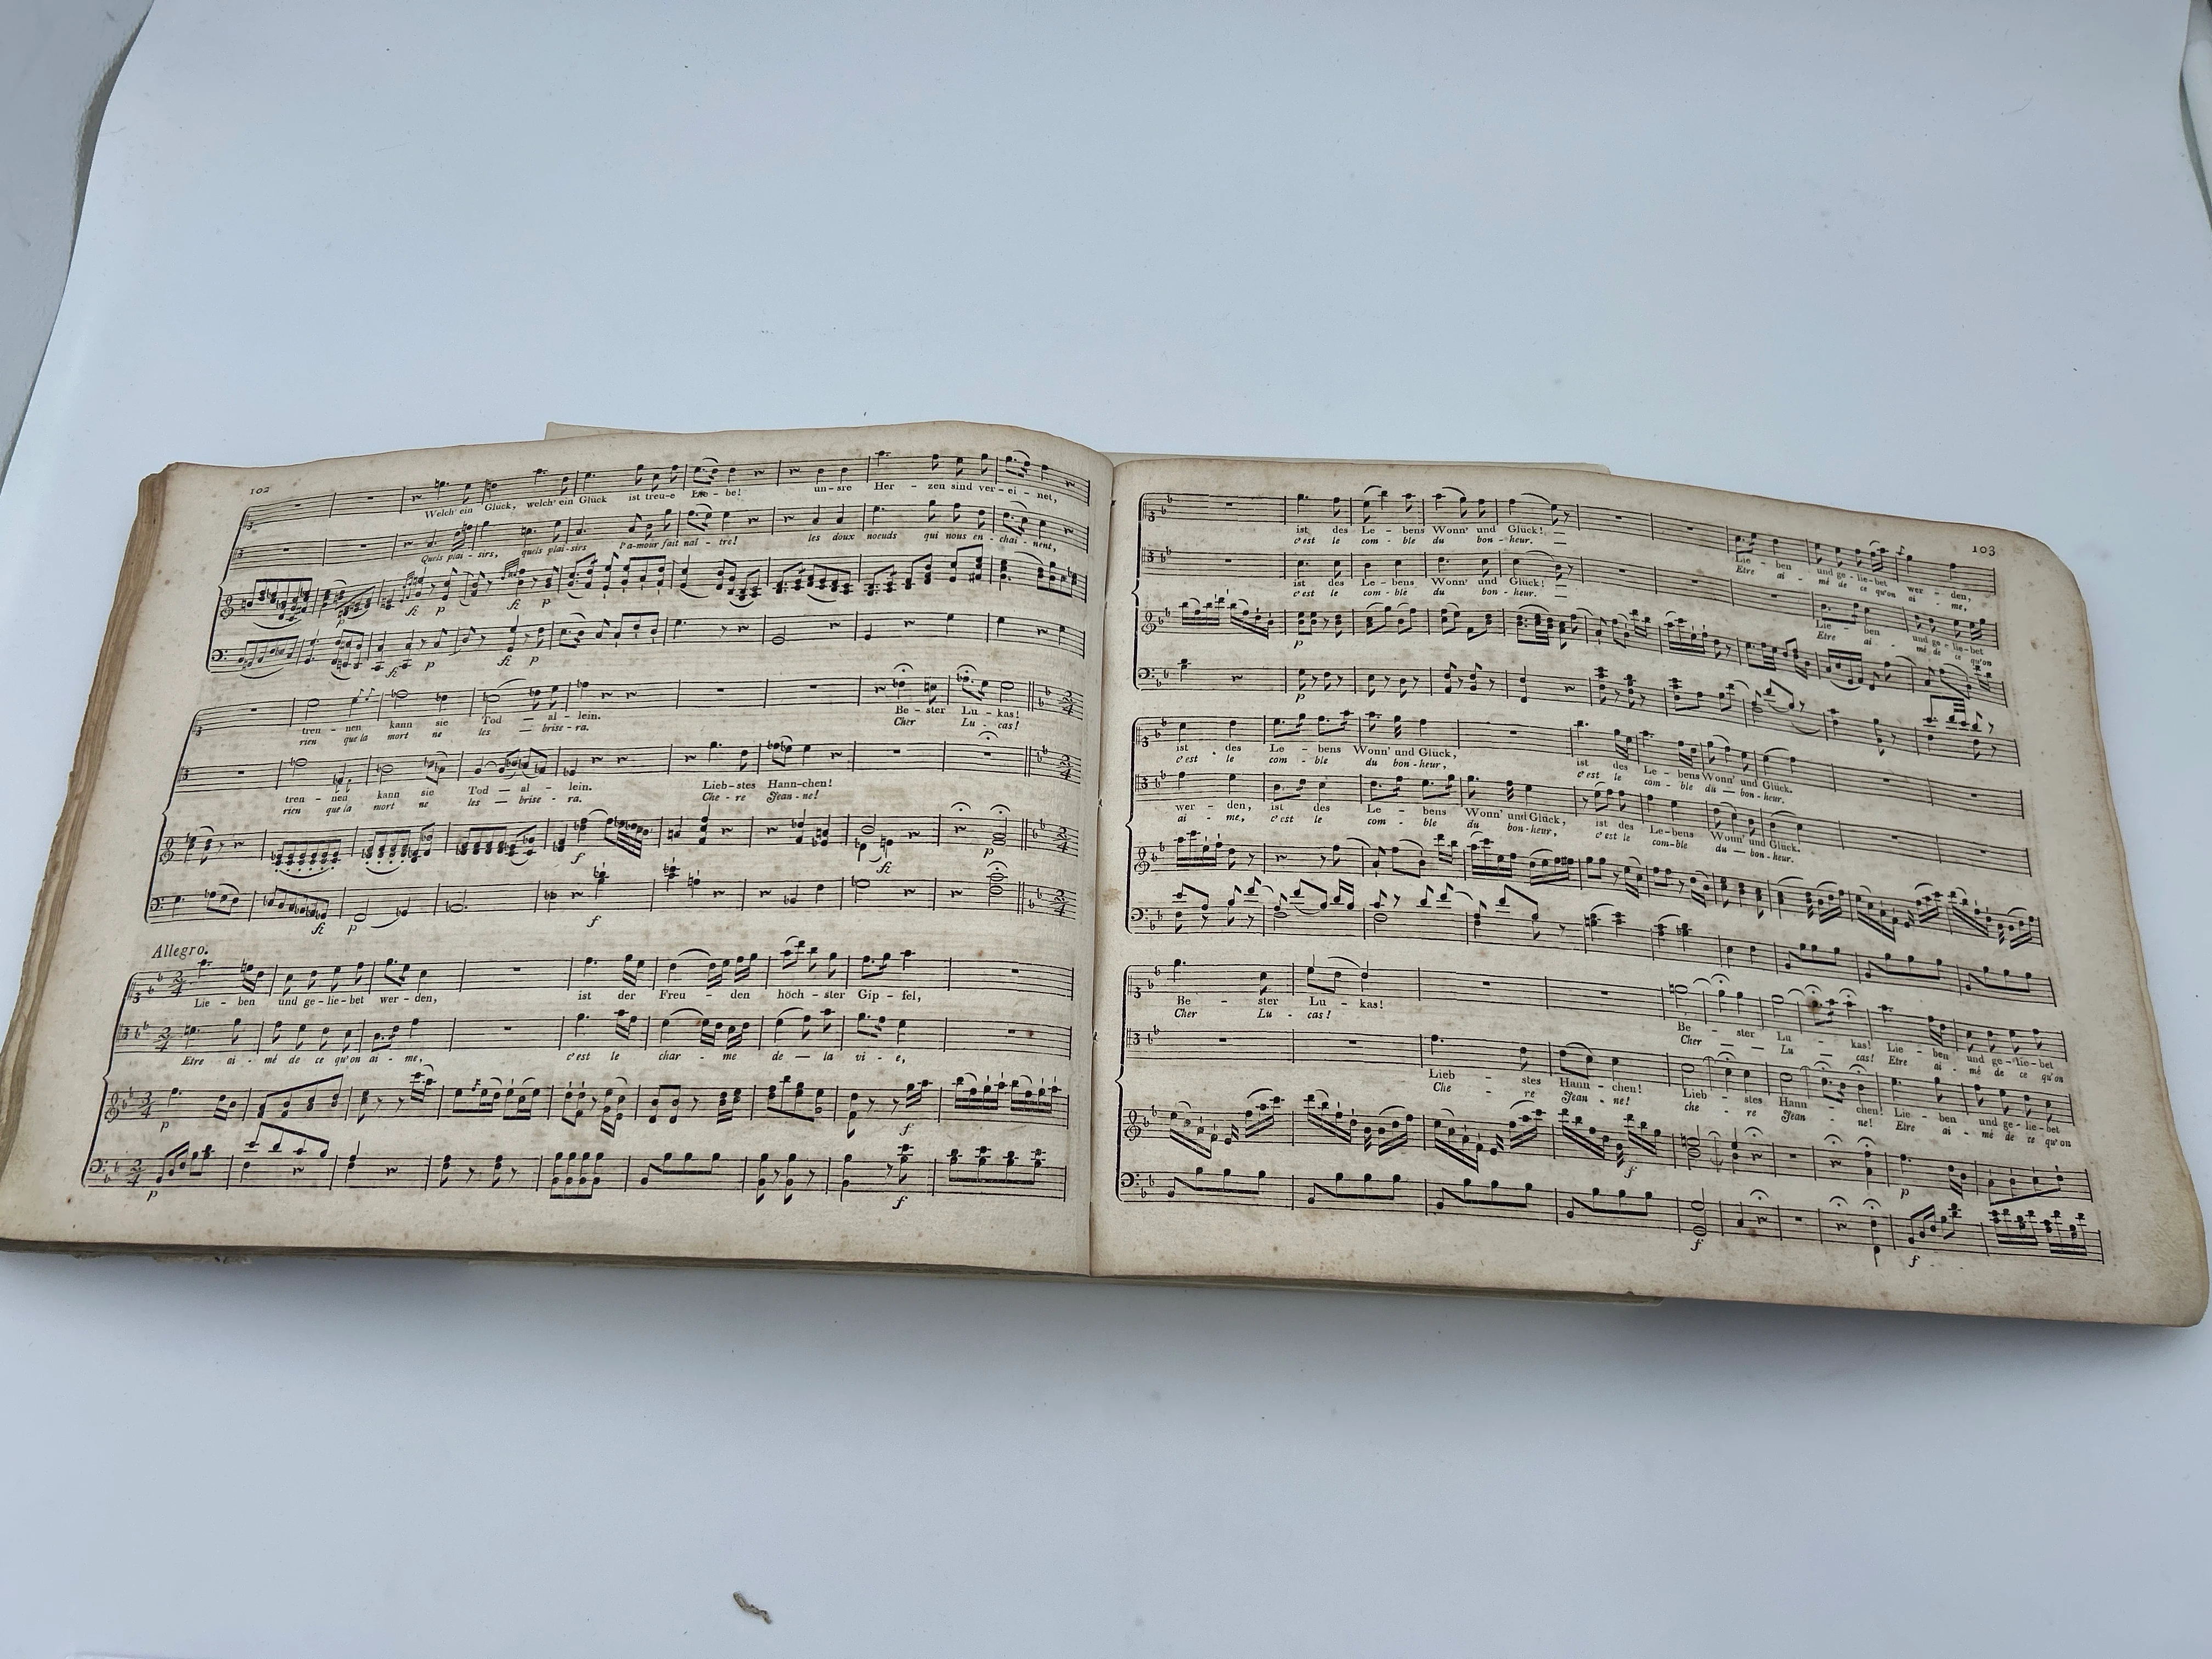 102
Welch' ein Glück, welch' ein Glück ist treu-e Lie-be! un-sre Her-zen sind ver-ei-net,
Quels plai-sirs, quels plai-sirs l'a-mour fait naî-tre! les doux noeuds qui nous en-chai-nent,
fz p fz p
fz p fz p
tren-nen kann sie Tod — al-lein. Be-ster Lu-kas!
rien que la mort ne les — brise-ra. Cher Lu-cas!
tren-nen kann sie Tod — al-lein. Lieb-stes Hann-chen!
rien que la mort ne les — brise-ra. Che-re Jean-ne!
f fz p
fz p f
Allegro.
Lie-ben und ge-lie-bet wer-den, ist der Freu-den höch-ster Gip-fel,
Etre ai-mé de ce qu'on ai-me, c'est le char-me de — la vi-e,
p f
p f
103
ist des Le-bens Wonn' und Glück! — Lie-ben und ge-lie-bet wer-den,
c'est le com-ble du bon-heur. — Etre ai-mé de ce qu'on ai-me,
ist des Le-bens Wonn' und Glück! — Lie-ben und ge-lie-bet
c'est le com-ble du bon-heur. — Etre ai-mé de ce qu'on
p
p
ist des Le-bens Wonn' und Glück, ist des Le-bens Wonn' und Glück.
c'est le com-ble du bon-heur, c'est le com-ble du — bon-heur.
wer-den, ist des Le-bens Wonn' und Glück, ist des Le-bens Wonn' und Glück.
ai-me, c'est le com-ble du bon-heur, c'est le com-ble du — bon-heur.
Be-ster Lu-kas! Be-ster Lu-kas! Lie-ben und ge-lie-bet
Cher Lu-cas! Cher — Lu — cas! Etre ai-mé de ce qu'on
Lieb-stes Hann-chen! Lieb-stes Hann-chen! Lie-ben und ge-lie-bet
Che-re Jean-ne! che-re Jean-ne! Etre ai-mé de ce qu'on
f p
f f